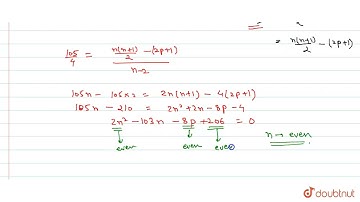 = n(n+1)/2 - (2p+1)
105/4 = (n(n+1)/2 - (2p+1))/(n-2)
105n - 105×2 = 2n(n+1) - 4(2p+1)
105n - 210 = 2n² + 2n - 8p - 4
2n² - 103n - 8p + 206 = 0
even even even n → even
doubtnut